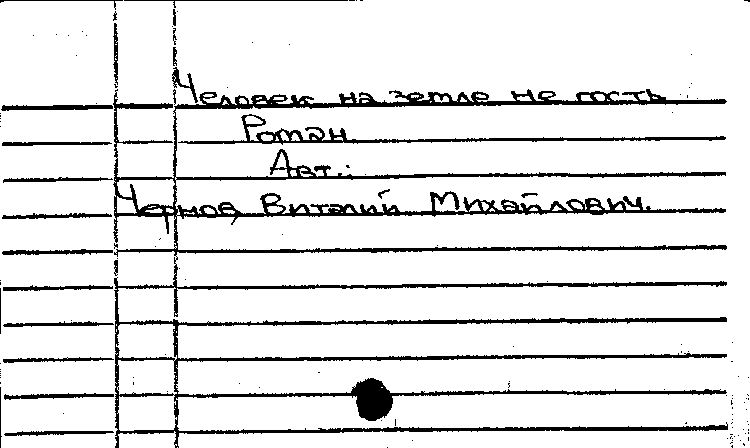 Человек на земле не гость
Роман
Авт.:
Чернов, Виталий Михайлович.